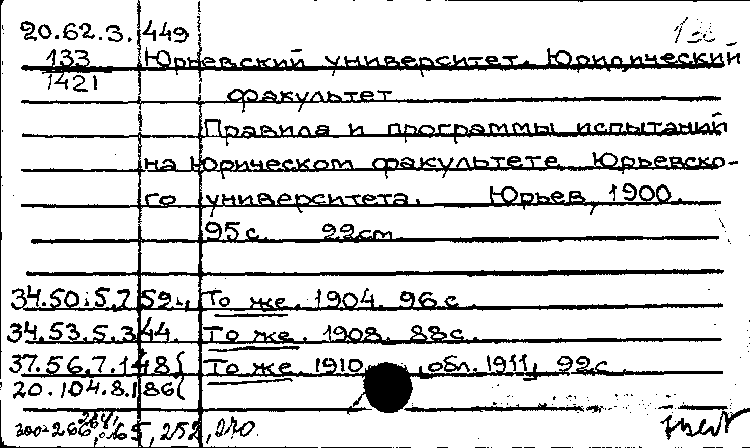 20.62.3.449
133 Юрьевский университет. Юридический
1421 факультет
Правила и программы испытаний
на Юрическом факультете Юрьевско-
го университета. Юрьев, 1900.
95 с. 22 cm
34.50.5.7 52. То же. 1904. 96 с.
34.53.5.344. То же. 1908. 88 с.
37.56.7.148 То же. 1910, обл. 1911, 92 с.
20.104.8.186
252, 270.